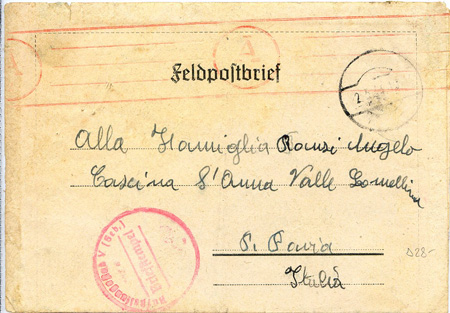 A
Feldpostbrief
Alla Famiglia Ranzi Angelo
Cascina S'Anna Valle Lomellina
P. Pavia
Italia
D28-